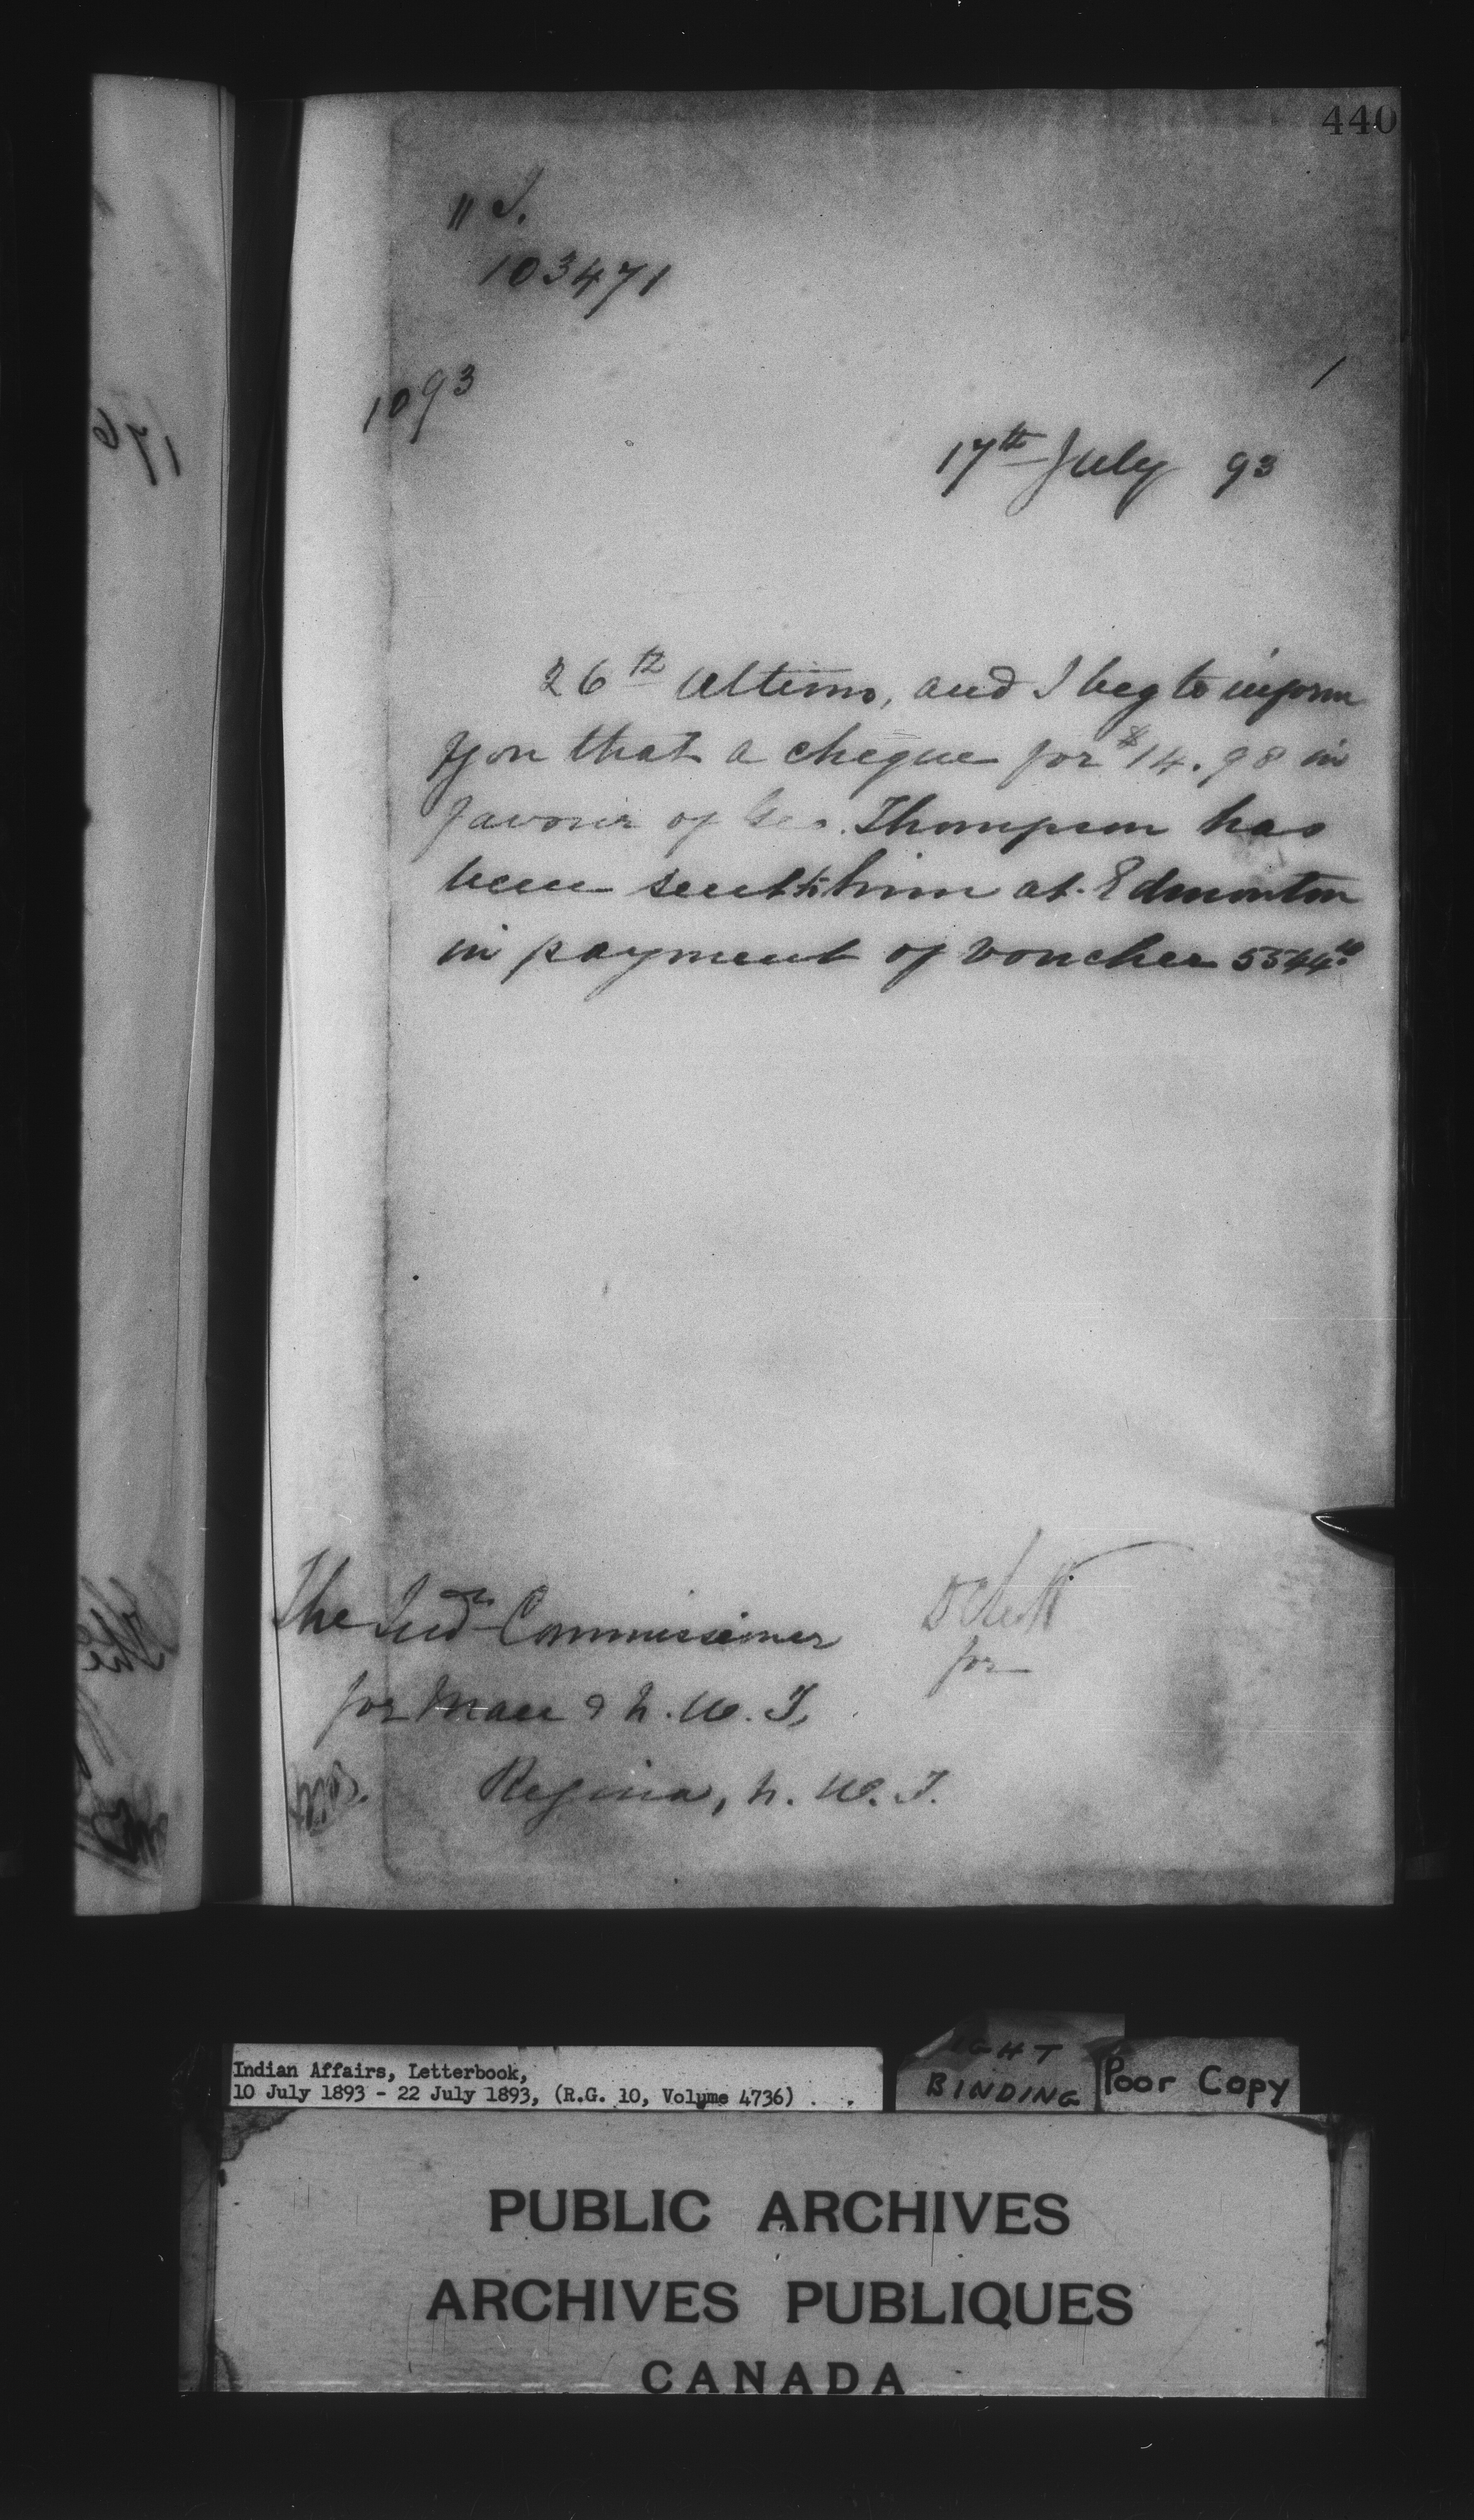 440
" S.
103471
1093
17th July 93
26th Ultimo, and I beg to inform
you that a cheque for $14.98 in
favour of Geo. Thompson has
been sent to him at Edmonton
in payment of voucher 5544
The Indn Commissioner
for
for Man & N. W. T,
Regina, N. W. T.
Indian Affairs, Letterbook,
10 July 1893 - 22 July 1893, (R.G. 10, Volume 4736)
BINDING
Poor Copy
PUBLIC ARCHIVES
ARCHIVES PUBLIQUES
CANADA